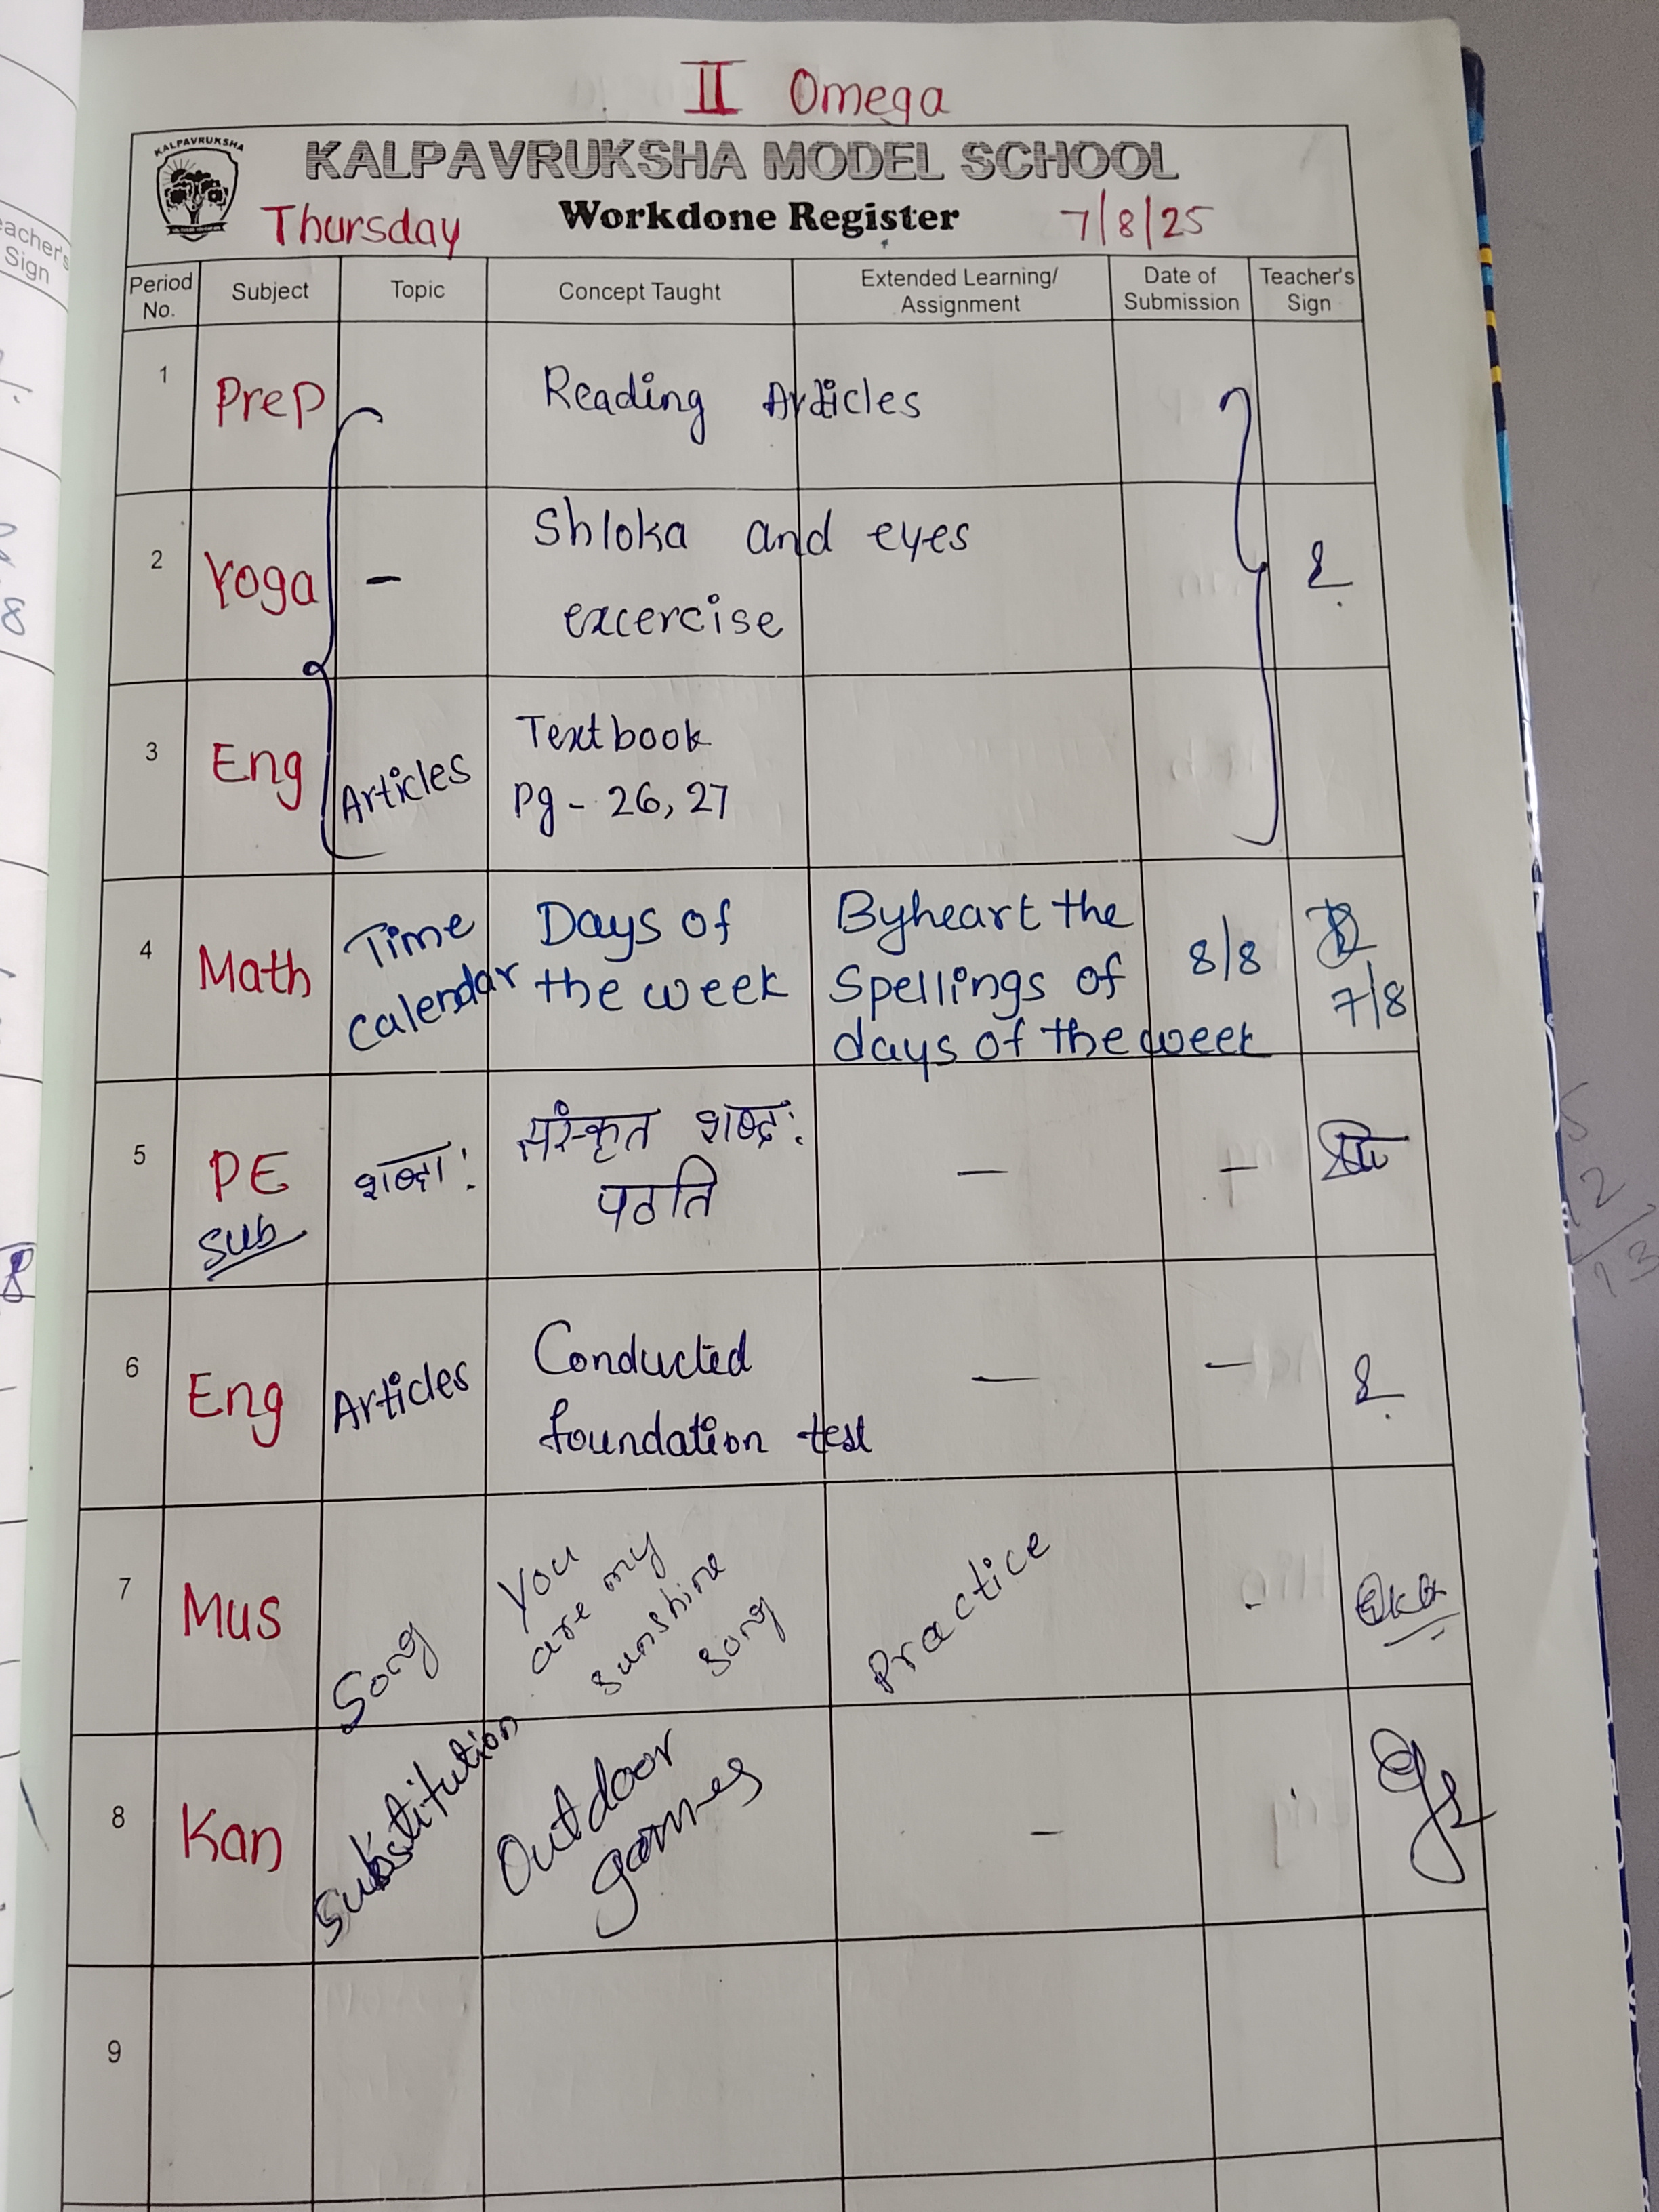 II Omega
KALPAVRUKSHA
KALPAVRUKSHA MODEL SCHOOL
Thursday Workdone Register 7/8/25
Period No. Subject Topic Concept Taught Extended Learning/ Assignment Date of Submission Teacher's Sign
1 Prep Reading Articles
2 Yoga – Shloka and eyes
excercise
3 Eng Articles Textbook
Pg - 26, 27
4 Math Time Days of Byheart the 8/8
calendar the week Spellings of 7/8
days of the week
5 PE शब्दाः संस्कृत शब्दः — –
sub पठति
6 Eng Articles Conducted — —
foundation test
7 Mus Song You are my sunshine song Practice -
8 Kan Substitution Outdoor games –
9
eacher's
Sign
8